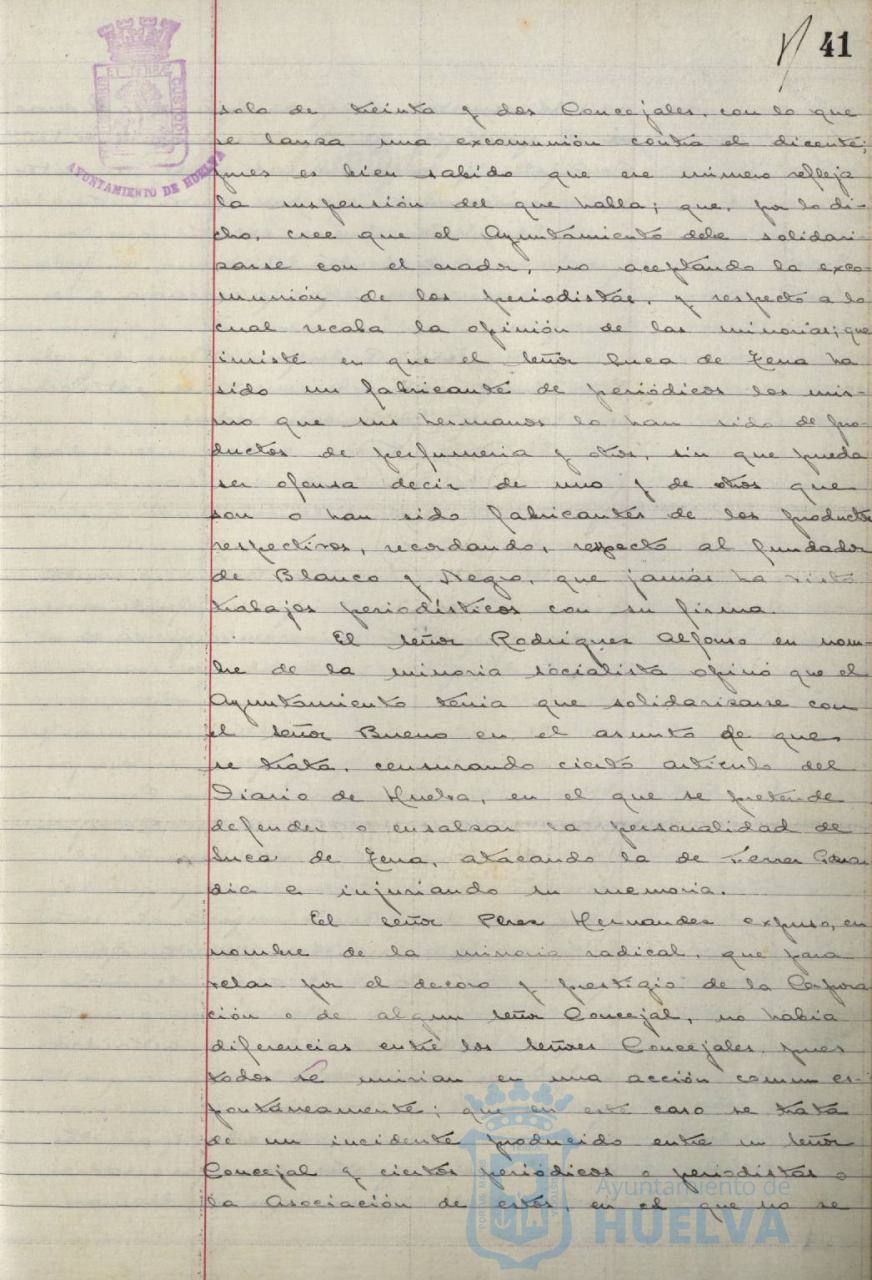 41
AYUNTAMIENTO DE HUELVA
solo de treinta y dos Concejales, con lo que
se lanza una excomunión contra el dicente;
pues es bien sabido que ese número refleja
la suspensión del que habla; que, por lo di-
cho, cree que el Ayuntamiento debe solidari-
zarse con el orador, no aceptando la exco-
munión de los periodistas, y respecto a lo
cual recaba la opinión de las minorias; que
insiste en que el Señor Luca de Tena ha
sido un fabricante de periódicos los mis-
mo que sus hermanos lo han sido de pro-
ductos de perfumeria y otros, sin que pueda
ser ofensa decir de uno y de otros que
son o han sido fabricantes de los productos
respectivos, recordando, respecto al fundador
de Blanco y Negro, que jamás ha visto
trabajos periodísticos con su firma.
El Señor Rodríguez Alfonso en nom-
bre de la minoria socialista opinó que el
Ayuntamiento tenia que solidarizarse con
el Señor Bueno en el asunto de que
se trata, censurando cierto artículo del
Diario de Huelva, en el que se pretende
defender o ensalzar la personalidad de
Luca de Tena, atacando la de Ferrer Guar
dia e injuriando su memoria.
El Señor Perez Hernandez expuso, en
nombre de la minoria radical, que para
velar por el decoro y prestigio de la Corpora
ción o de algun Señor Concejal, no habia
diferencias entre los Señores Concejales pues
todos se unirian en una acción comun es-
pontáneamente; que en este caso se trata
de un incidente producido entre un Señor
Concejal y ciertos periódicos o periodistas o
la Asociación de estos, en el que no se
Ayuntamiento de
HUELVA